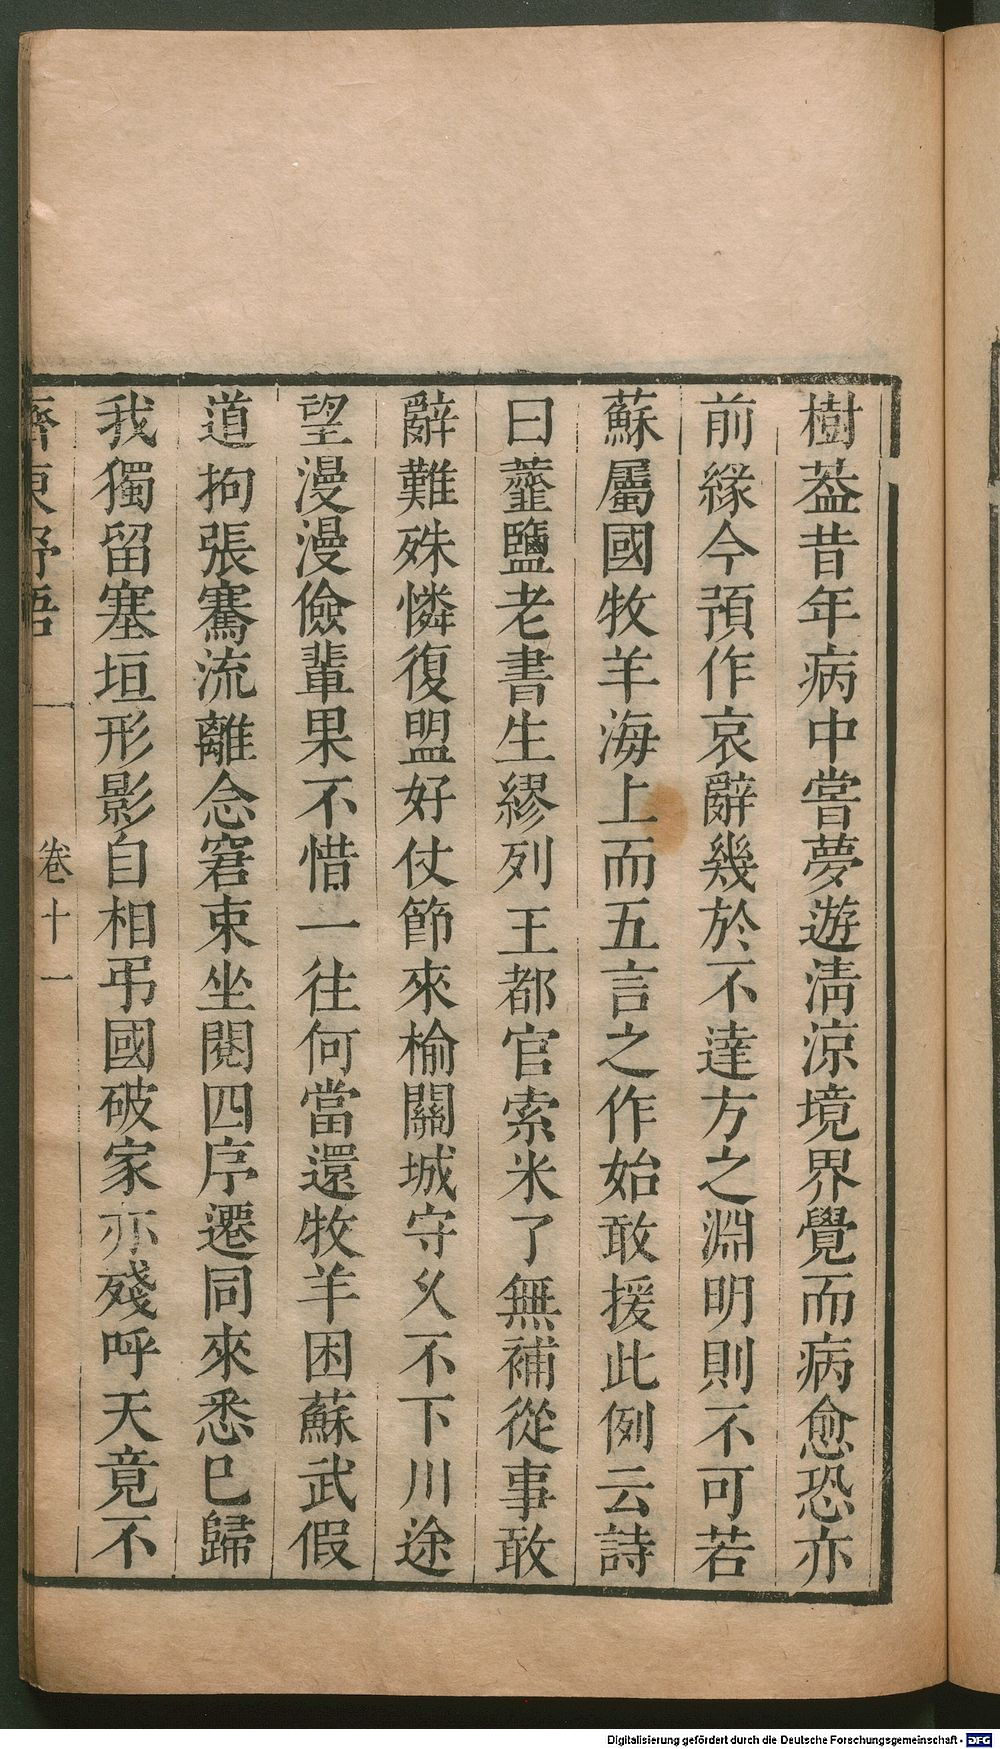 樹葢昔年病中嘗夢遊清涼境界覺而病愈恐亦
前緣今預作哀辭幾於不達方之淵明則不可若
蘇屬國牧羊海上而五言之作始敢援此例云詩
曰虀鹽老書生繆列王都官索米了無補從事敢
辭難殊憐復盟好仗節來榆關城守乆不下川途
望漫漫儉輩果不惜一往何當還牧羊困蘇武假
道拘張騫流離念窘束坐閱四序遷同來悉巳歸
我獨留塞垣形影自相弔國破家亦殘呼天竟不
齊東野語
卷十一
Digitalisierung gefördert durch die Deutsche Forschungsgemeinschaft - DFG